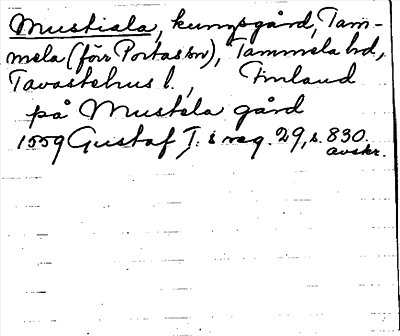 Mustiala, kungsgård, Tam-
mela (förr Portas sn), Tammela hd,
Tavastehus l., Finland
på Mustela gård
1559 Gustaf I:s reg. 29, s. 830.
avskr.